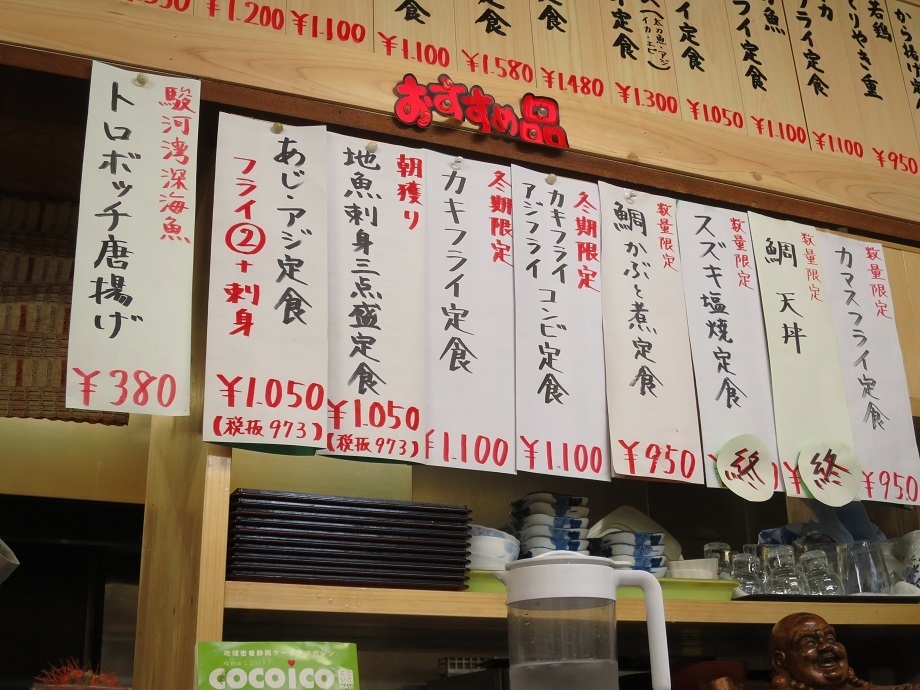 ¥1.200
¥1.100
食
¥1.100
食
¥1.580
食
¥1.480
定食
(太刀魚・アジ
イカ・エビ)
¥1.300
定食
¥1.050
フライ定食
¥1.100
魚
カ
フライ定食
¥1.100
若鶏
てりやき重
¥950
から揚げ
おすすめ品
駿河湾深海魚
トロボッチ唐揚げ
¥380
あじ・アジ定食
フライ②+刺身
¥1.050
(税抜973)
朝獲り
地魚刺身三点盛定食
¥1.050
(税抜973)
冬期限定
カキフライ定食
¥1.100
冬期限定
カキフライコンビ定食
アジフライ
¥1.100
数量限定
鯛かぶと煮定食
¥950
数量限定
スズキ塩焼定食
終
数量限定
鯛天丼
終
数量限定
カマスフライ定食
¥950
cocoico